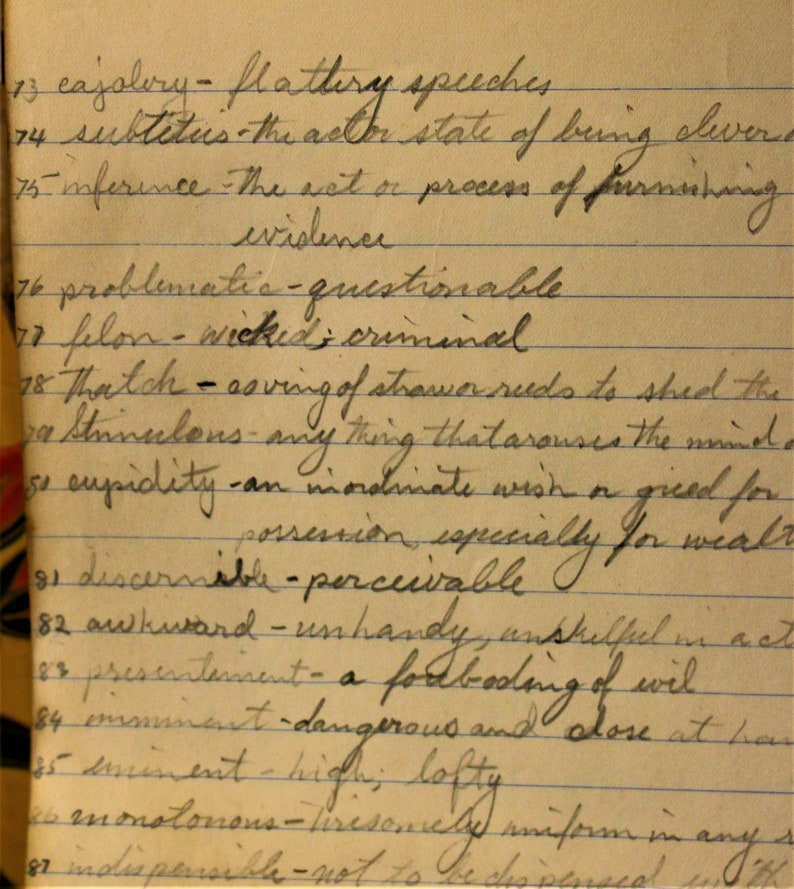 73 cajolery - flattery speeches
74 subteties - the act or state of being clever
75 inference - the act or process of furnishing
evidence
76 problematic - questionable
77 felon - wicked; criminal
78 thatch - coving of straw or reeds to shed the
79 Stimulous - any thing that arouses the mind
80 cupidity - an inordinate wish or greed for
possession, especially for wealt
81 discernible - perceivable
82 awkward - unhandy, unskilful in act
83 presentiment - a foreboding of evil
84 imminent - dangerous and close at han
85 eminent - high; lofty
86 monotonous - tiresomely uniform in any
87 indispensible - not to be dispensed with